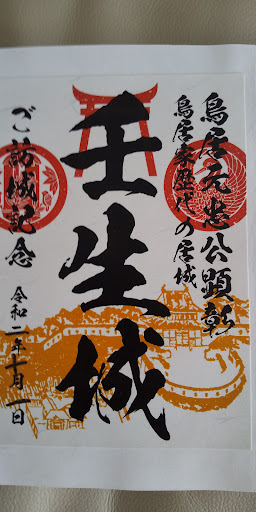 鳥居元忠公顕彰
鳥居家歴代の居城
壬生城
ご訪城記念
令和二年十月一日